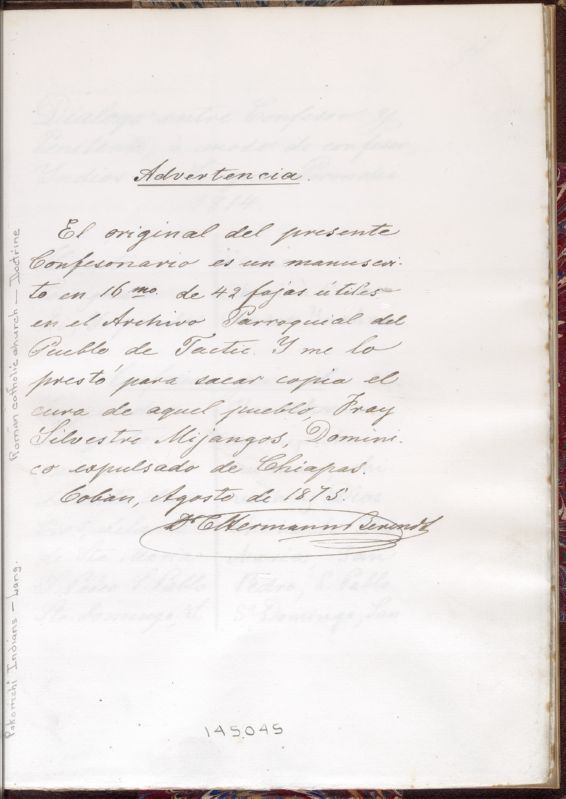 Advertencia.
El original del presente
Confesonario es un manuscri-
to en 16 mo. de 42 fojas útiles
en el Archivo Parroquial del
Pueblo de Tactic. Y me lo
prestó para sacar copia el
cura de aquel pueblo, Fray
Silvestre Mijangos, Domini-
co expulsado de Chiapas.
Coban, Agosto de 1875.
Dr CHermann Berendt
145045
Roman catholic church - Doctrine
Pokomchi Indians - Lang.